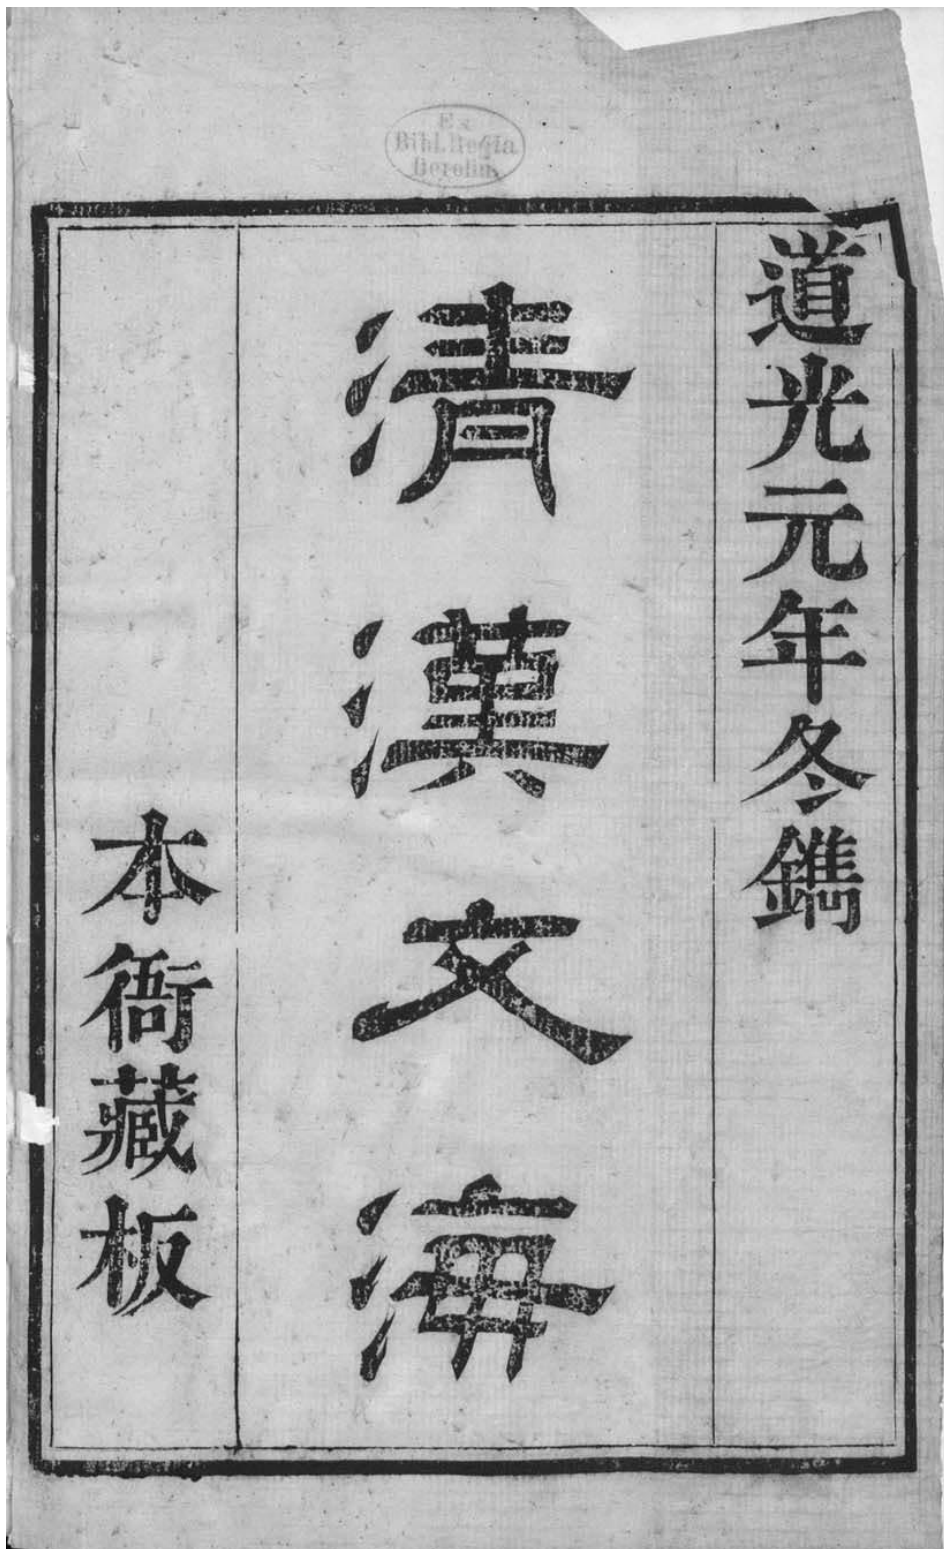 Ex
Bibl. Regia
Berolin.
道光元年冬鐫
清漢文海
本衙藏板